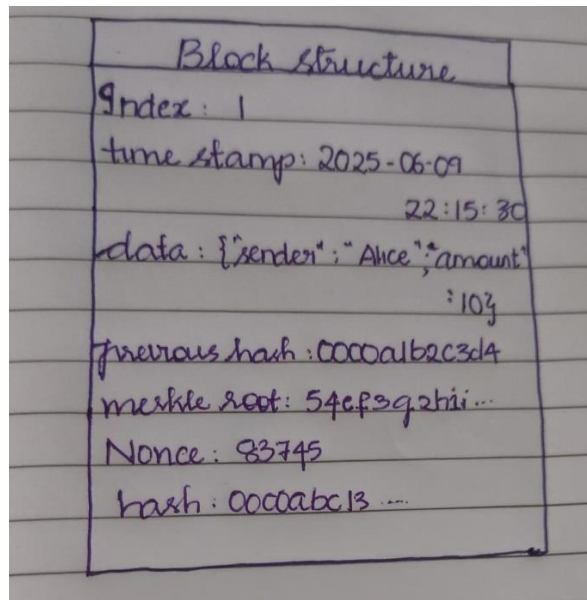 Block structure
Index: 1
time stamp: 2025-06-09
22:15:30
data: {"sender": "Alice", "amount"
:10}
previous hash: 0000a1b2c3d4
merkle root: 54ef3g2h1i...
Nonce: 83745
hash: 0000abc13 ....